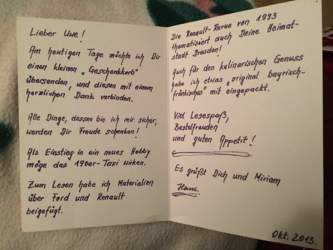 Lieber Uwe!
Am heutigen Tage möchte ich Dir
einen kleinen „Geschenkkorb“
übersenden, und diesen mit einem
herzlichen Dank verbinden.
Alle Dinge, dessen bin ich mir sicher,
werden Dir Freude schenken!
Als Einstieg in ein neues Hobby
möge das 190er-Taxi wirken.
Zum Lesen habe ich Materialien
über Ford und Renault
beigefügt.
Die Renault-Revue von 1993
thematisiert auch Deine Heimat-
stadt Dresden!
Auch für den kulinarischen Genuss
habe ich etwas „original bayrisch-
fränkisches“ mit eingepackt.
Viel Lesespaß,
Bastelfreuden
und guten Appetit!
Es grüßt Dich und Miriam
Okt. 2013